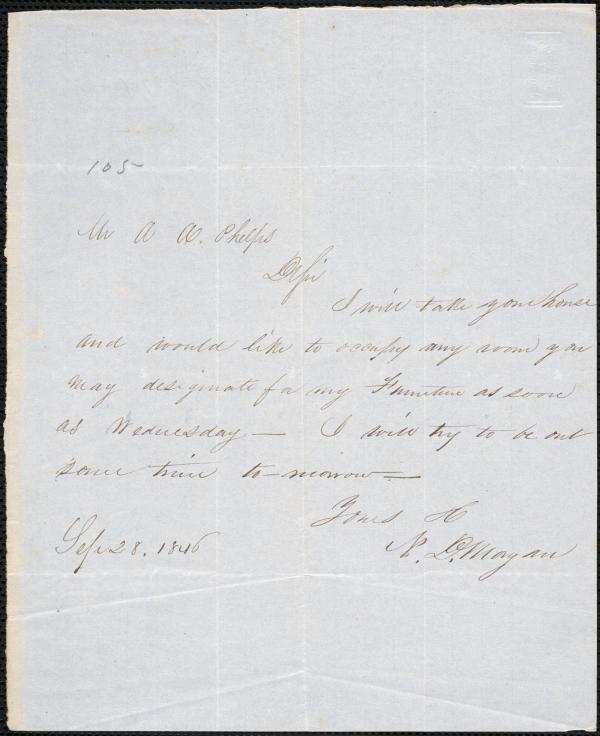 105
Mr A A. Phelps
D Sir
I will take your house
and would like to occupy any room you
may designate for my Furniture as soon
as Wednesday — I will try to be out
some time to-morrow —
Yours &c
N. D. Morgan
Sep 28. 1846